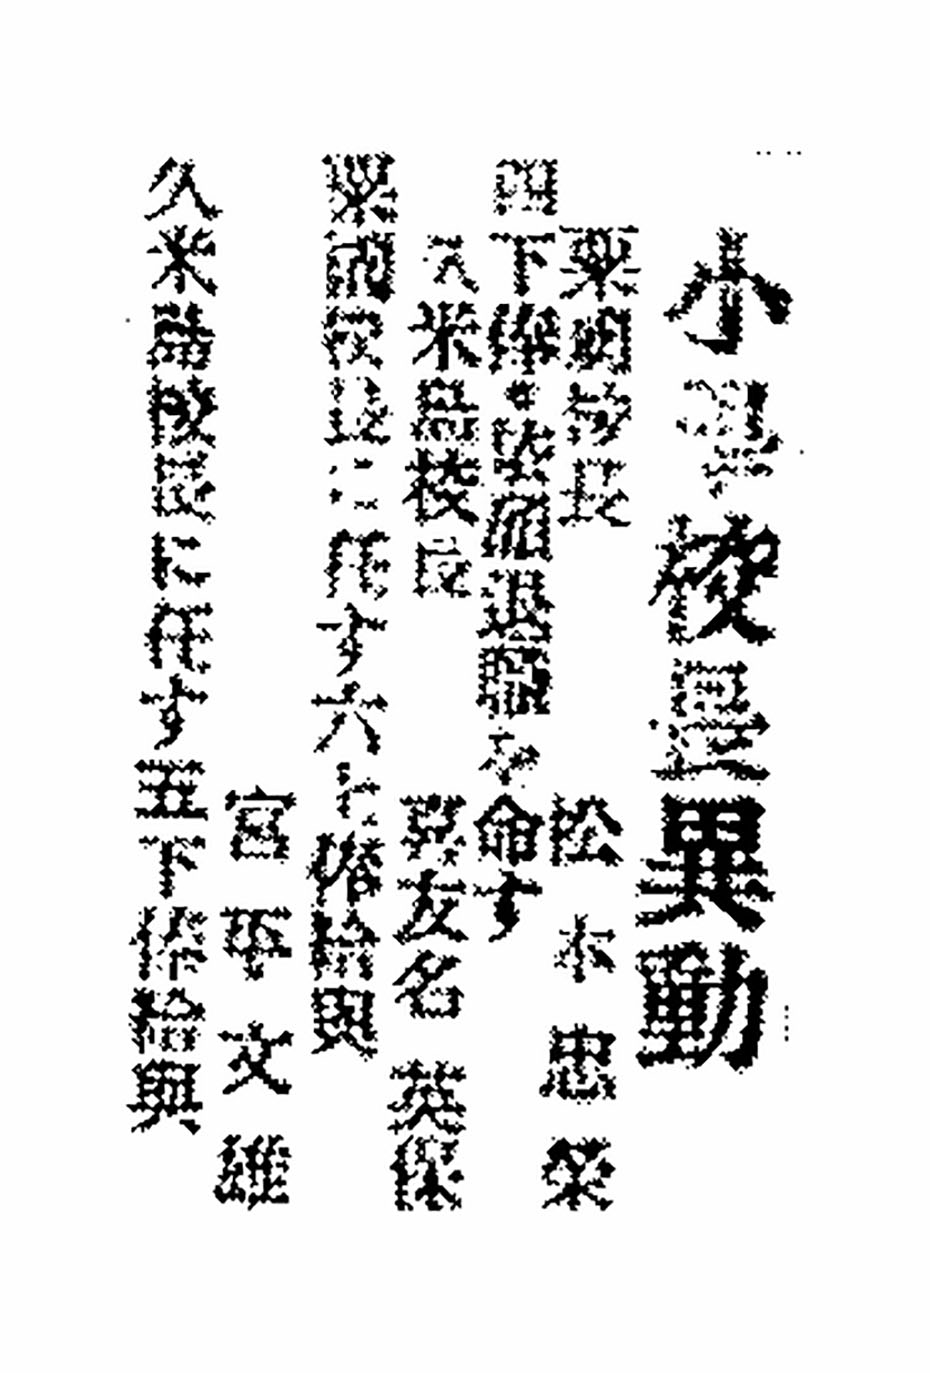 小學校長異動
粟國校長 松本忠榮
四下俸・依願退職を命す
久米島校長 友名英保
粟國校長に任す六上俸給與
宮平文雄
久米島校長に任す五下俸給與